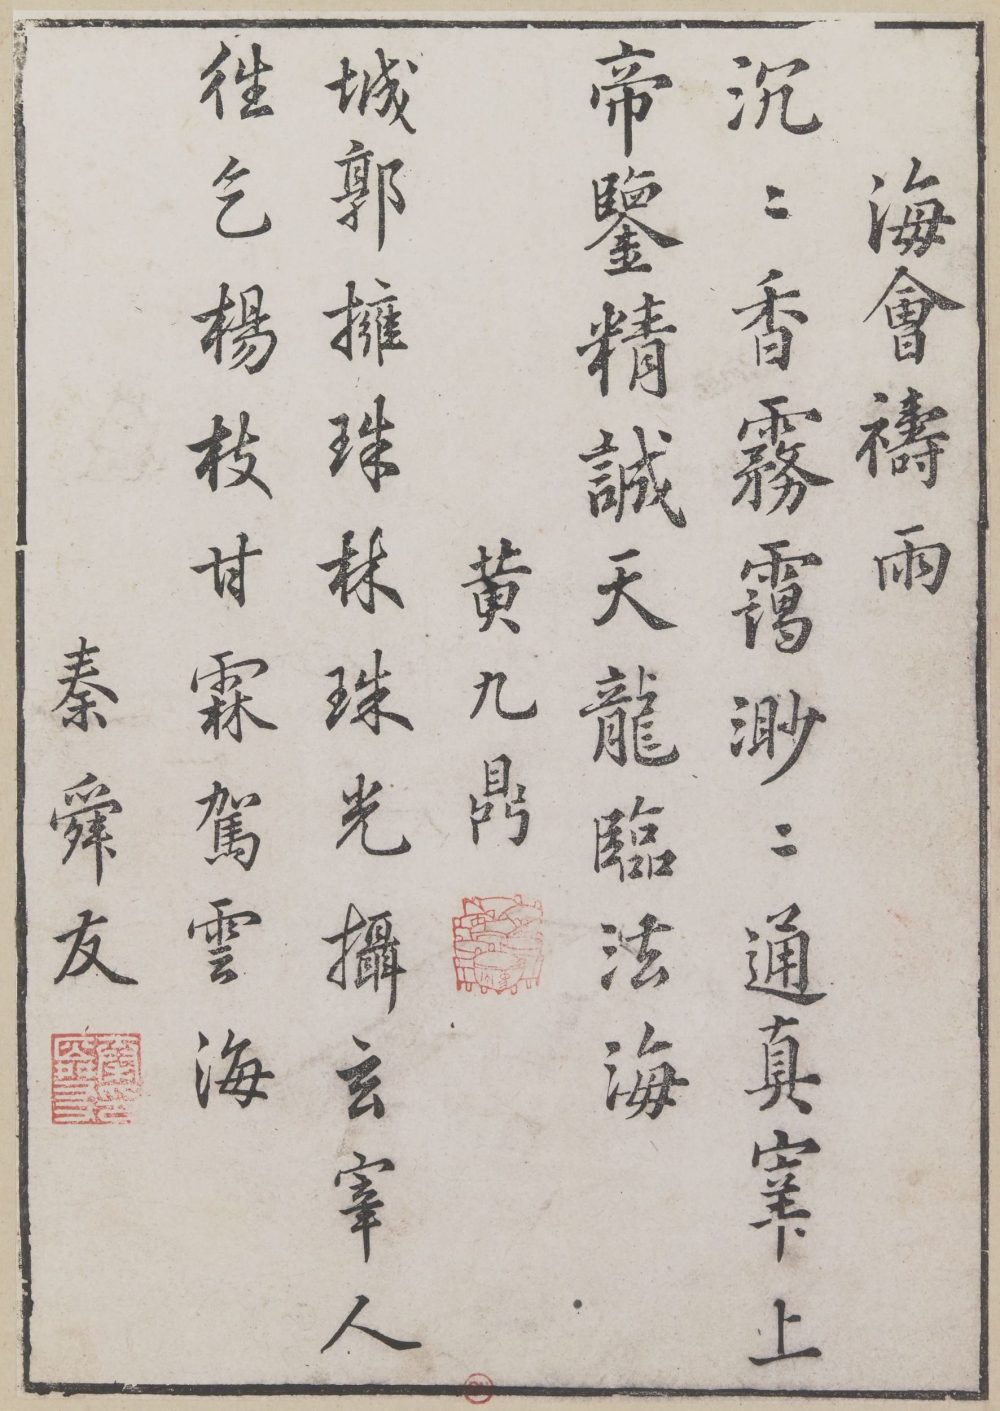 海會禱雨
沉〻香霧靄渺〻通真宰上
帝鑒精誠天龍臨法海
黄九鼎
城郭擁珠林珠光攝玄宰人
徃乞楊枝甘霖駕雲海
秦舜友